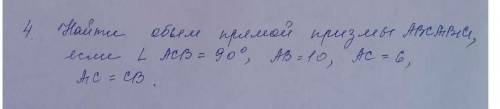 4. Найти объем прямой призмы ABCA₁B₁C₁,
если L ACB = 90°, AB = 10, AC = 6,
A₁C = CB.